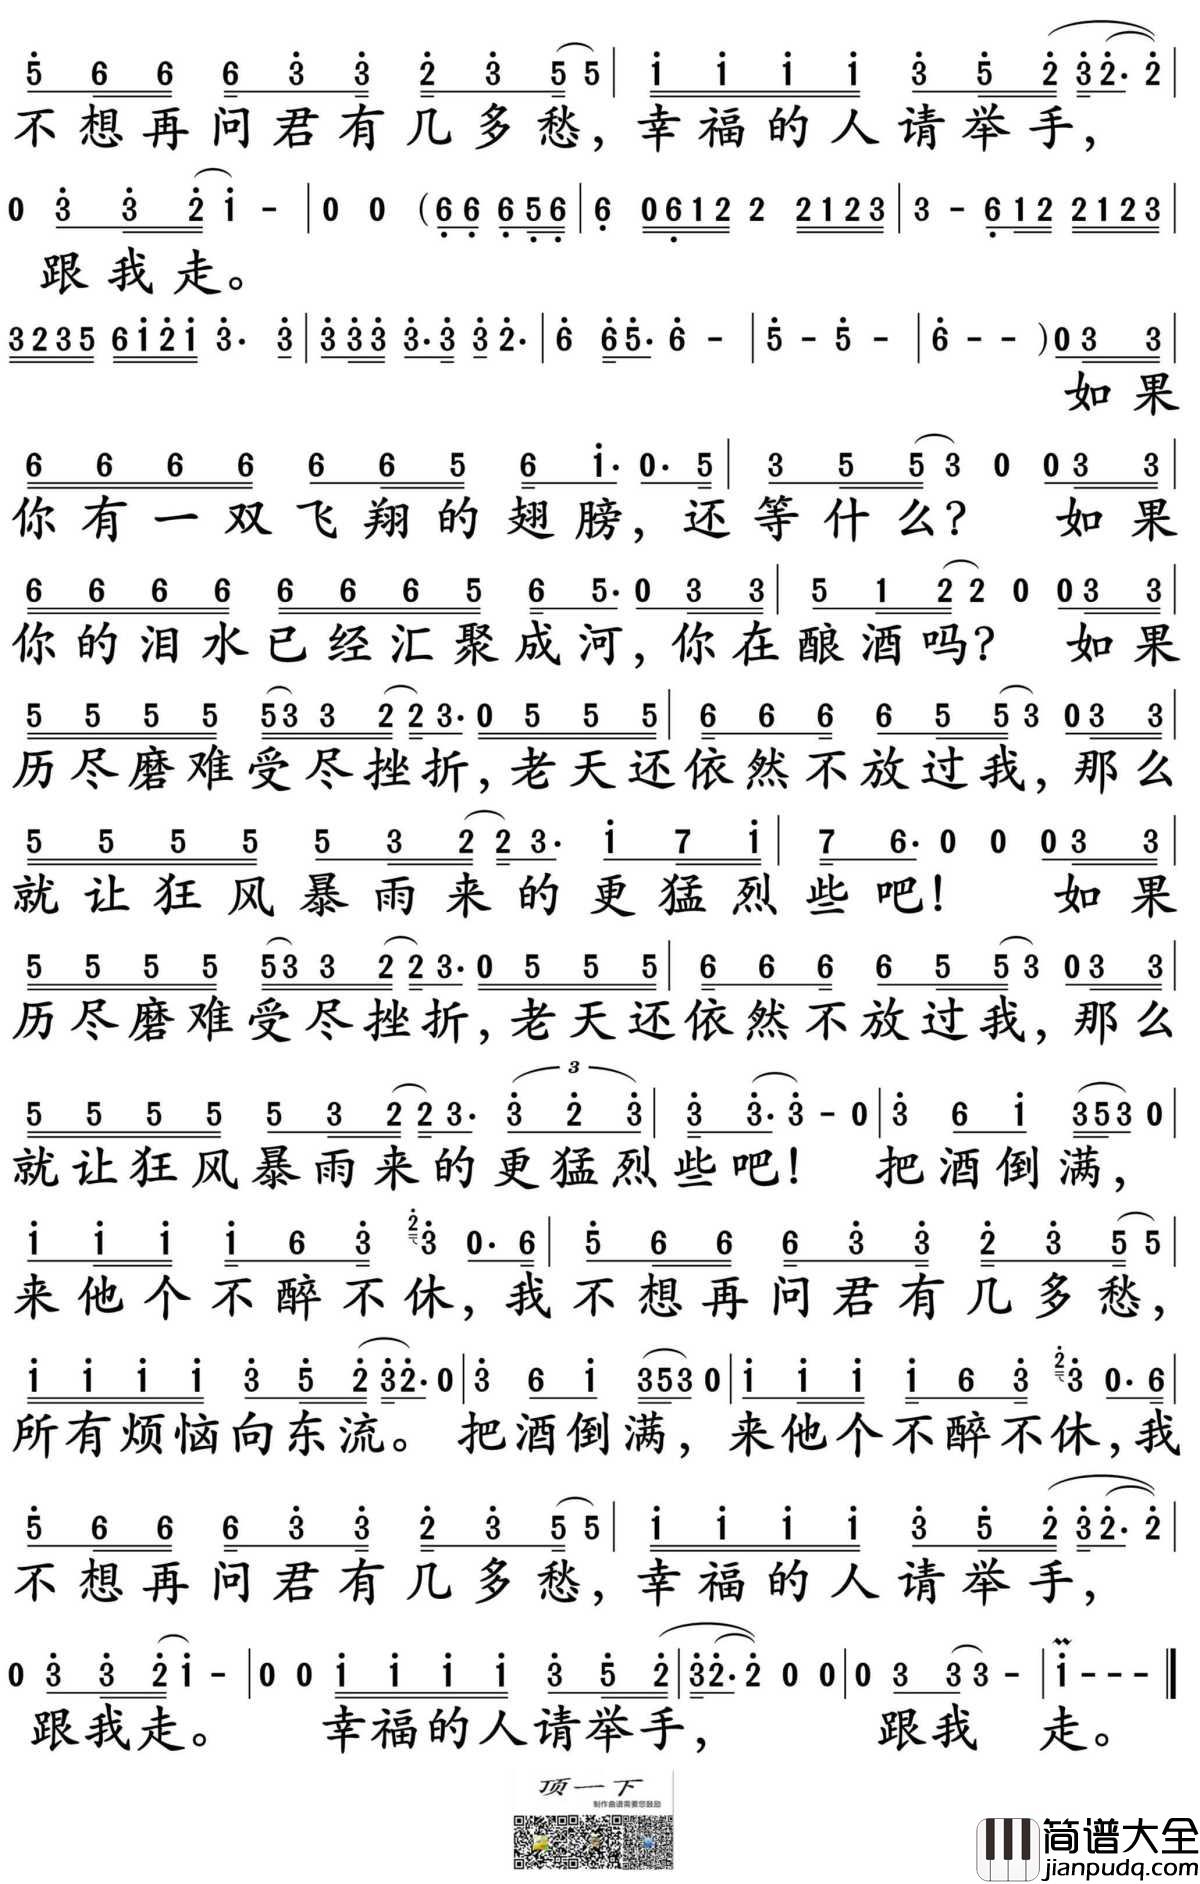 5 6 6 6 3 3 2 3 5 5 | 1 1 1 1 3 5 2 3 2. 2 |
不想再问君有几多愁，幸福的人请举手，
0 3 3 2 1 - | 0 0 (6 6 6 5 6 | 6 0612 2 2123 | 3 - 6 12 2123 |
跟我走。
3235 6121 3. 3 | 3 3 3 3. 3 3 2. | 6 6 5. 6 - | 5 - 5 - | 6 - - ) 0 3 3 |
如果
6 6 6 6 6 6 5 6 1. 0. 5 | 3 5 5 3 0 0 3 3 |
你有一双飞翔的翅膀，还等什么？ 如果
6 6 6 6 6 6 6 5 6 5. 0 3 3 | 5 1 2 2 0 0 3 3 |
你的泪水已经汇聚成河，你在酿酒吗？ 如果
5 5 5 5 53 3 2 2 3. 0 5 5 5 | 6 6 6 6 5 5 3 0 3 3 |
历尽磨难受尽挫折，老天还依然不放过我，那么
5 5 5 5 5 3 2 2 3. 1 7 1 | 7 6. 0 0 0 3 3 |
就让狂风暴雨来的更猛烈些吧！ 如果
5 5 5 5 53 3 2 2 3. 0 5 5 5 | 6 6 6 6 5 5 3 0 3 3 |
历尽磨难受尽挫折，老天还依然不放过我，那么
3
5 5 5 5 5 3 2 2 3. 3 2 3 | 3 3. 3 - 0 | 3 6 1 353 0 |
就让狂风暴雨来的更猛烈些吧！ 把酒倒满，
1 1 1 1 6 3 2 3 0. 6 | 5 6 6 6 3 3 2 3 5 5 |
来他个不醉不休，我不想再问君有几多愁，
1 1 1 1 3 5 2 3 2. 0 | 3 6 1 353 0 | 1 1 1 1 6 3 2 3 0. 6 |
所有烦恼向东流。把酒倒满，来他个不醉不休，我
5 6 6 6 3 3 2 3 5 5 | 1 1 1 1 3 5 2 3 2. 2 |
不想再问君有几多愁，幸福的人请举手，
0 3 3 2 1 - | 0 0 1 1 1 1 3 5 2 | 3 2. 2 0 0 | 0 3 3 3 - | 1 - - - ‖
跟我走。 幸福的人请举手， 跟我 走。
顶一下
制作曲谱需要您鼓励
简谱大全
jianpudq.com